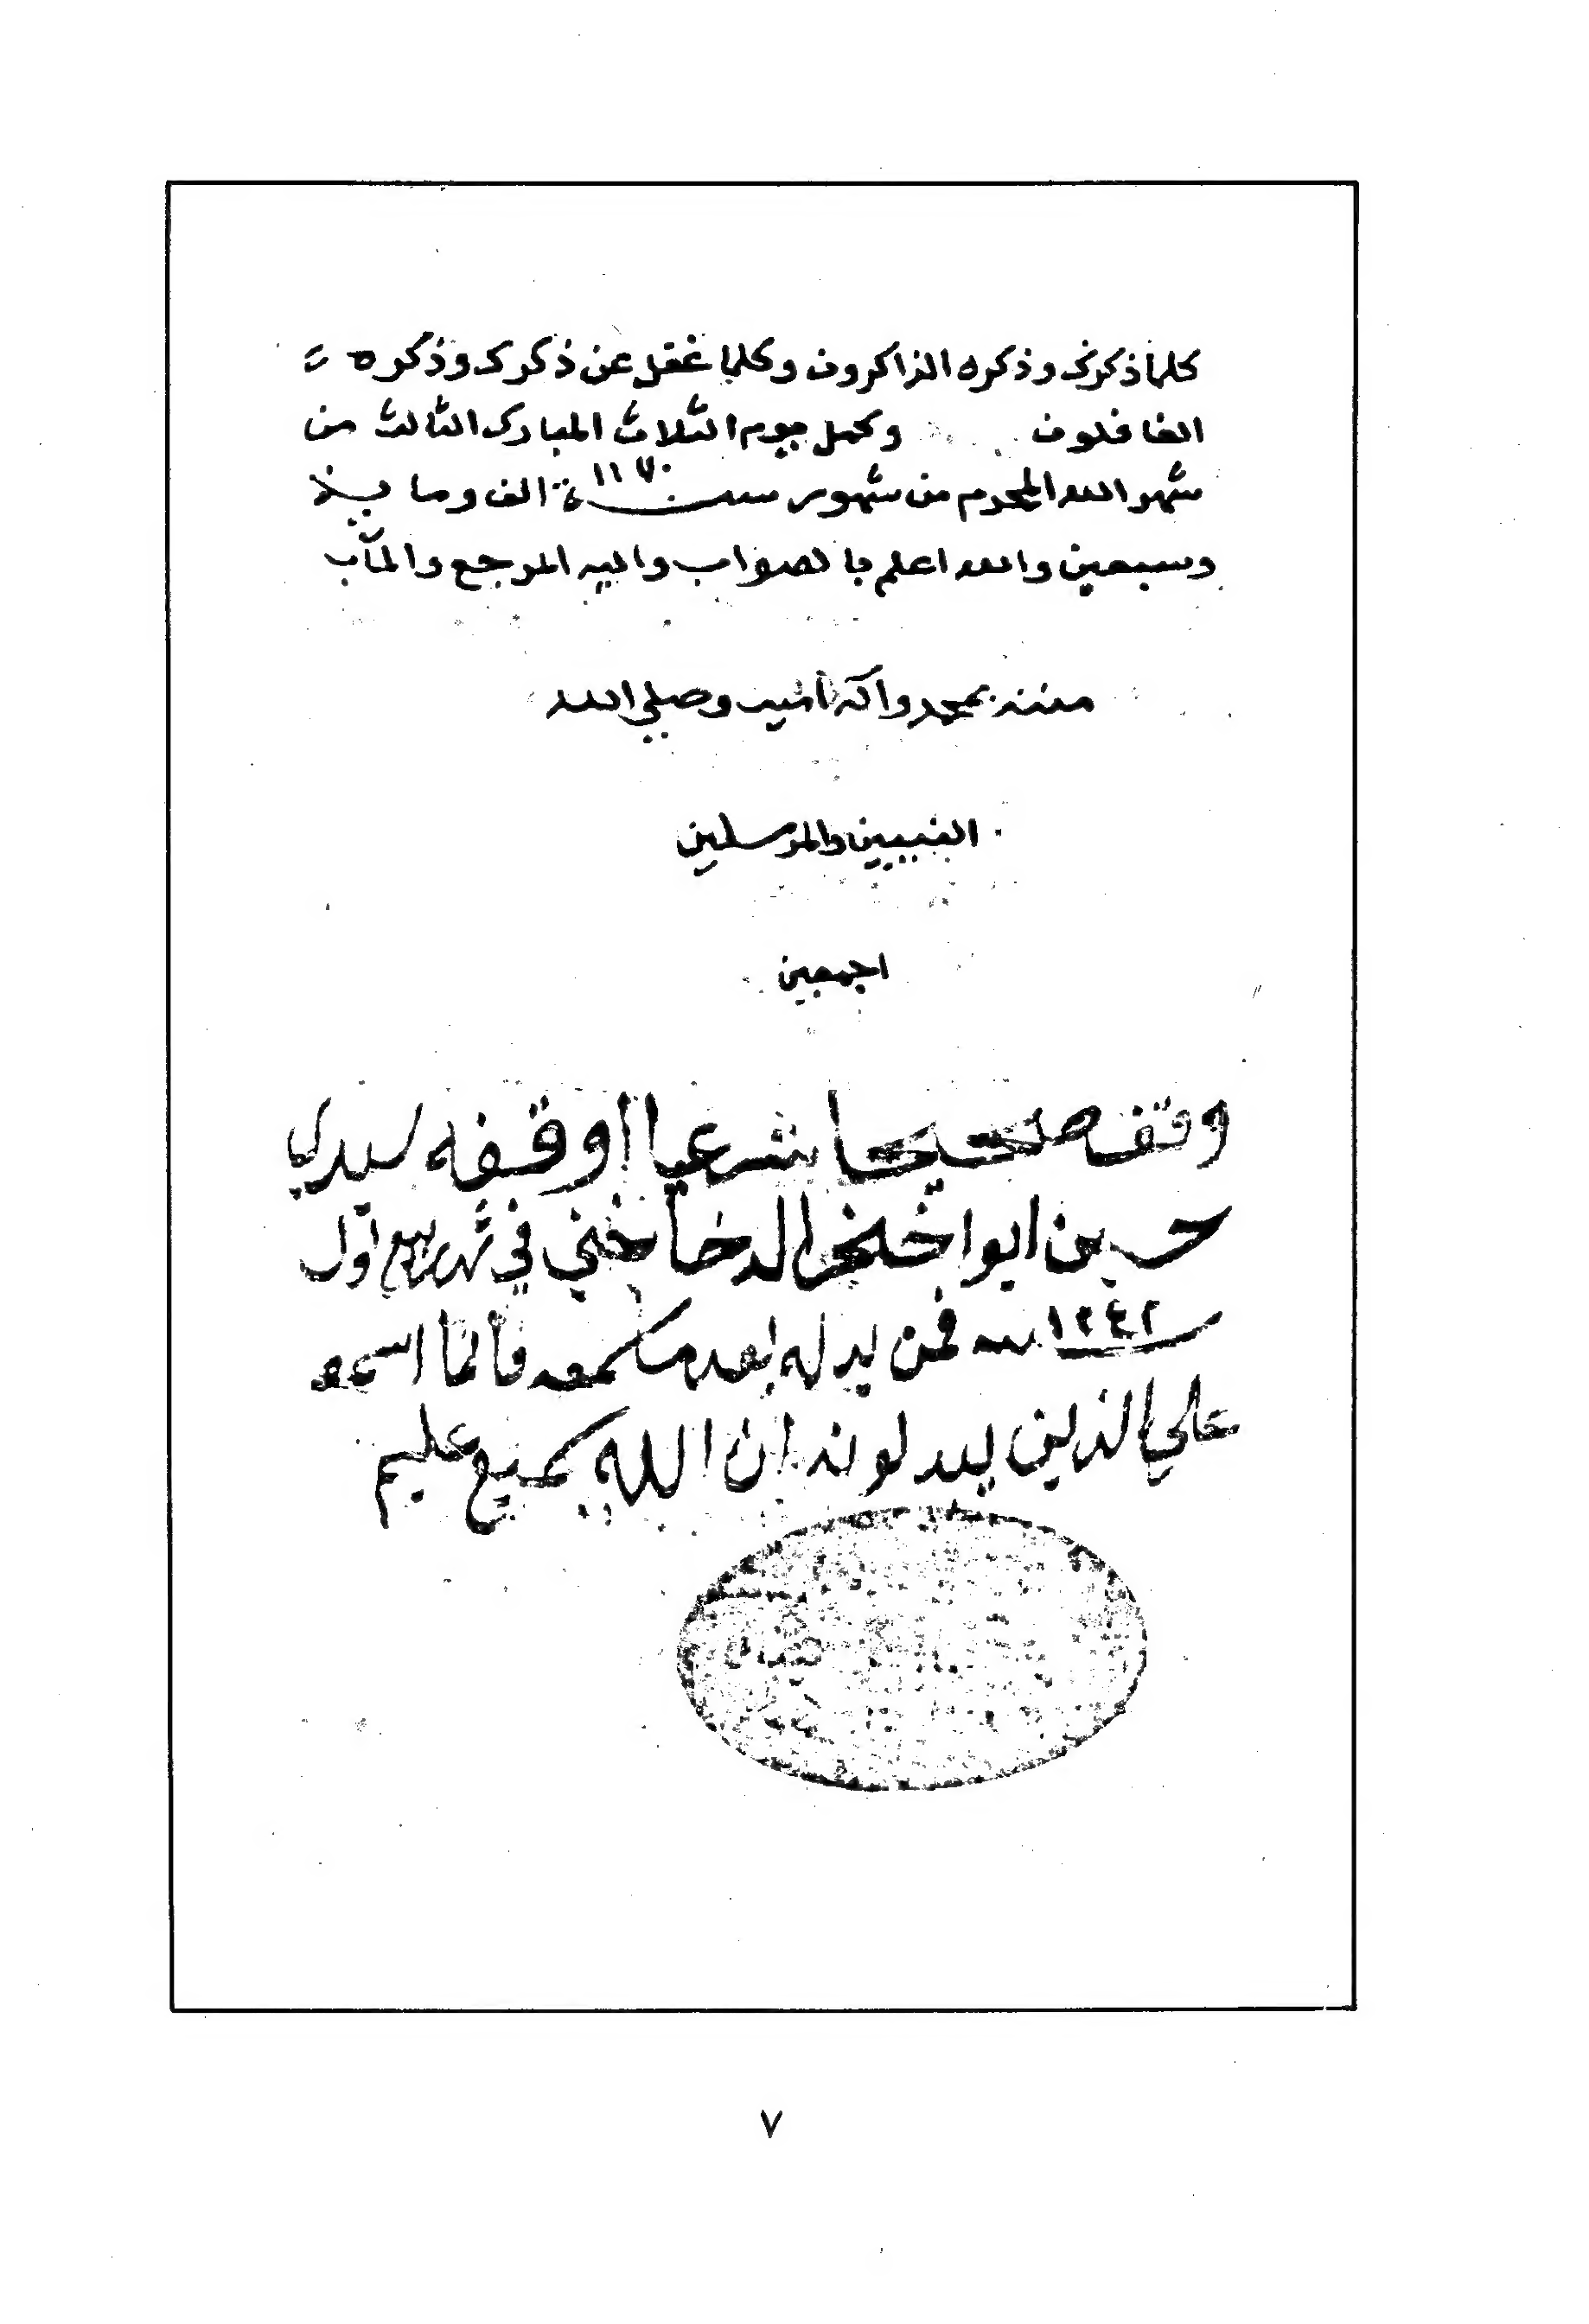 كلما ذكرك وذكره الذاكرون وكلما غفل عن ذكرك وذكره
الغافلون وكمل يوم الثلاث المبارك الثالث من
شهر الله المحرم من شهور سنة ١١٧٠ الف وماية
وسبعين والله اعلم بالصواب واليه المرجع والمآب
بمحمد واله امين وصلي الله
النبيين والمرسلين
اجمعين
وقف صحيحا شرعيا أوقفه سيدي
حسين ابوا خنجر الدخاخني في شهر ربيع اول
١٢٤٢ سنه فمن بدله بعد ما سمعه فأنما اسمه
علي الذين يبدلونه ان الله سميع عليم
٧